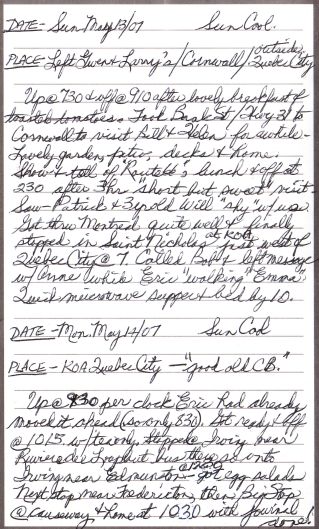 DATE - Sun. May 13/07 Sun Cool.
PLACE - Left Gwen & Larry's / Cornwall / outside Quebec City
Up @ 730 & off @ 910 after lovely breakfast of
toasted tomatoes. Took Bank St / Hwy 31 to
Cornwall to visit Bill & Helen for awhile -
Lovely garden, patio, decks & home.
Show & tell of "Routes" & lunch & off at
230 after 3hr short but sweet visit -
Saw Patrick & 3yr old Will "sky" w/ us.
Got thru Montreal quite well & finally
stopped in Saint Nicholas at KOA just west of
Quebec City @ 7. Called Bob & left message
w/ Anne while Eric "walking" Emma
Quick microwave supper & bed by 10.
DATE - Mon. May 14/07 Sun Cool
PLACE - KOA Quebec City - "good old C.B."
Up @ 930 per clock Eric had already
moved it ahead (so only 830). Got ready & off
@ 1015 w/ tea only. Stopped @ Irving near
Riviere de Loup but bus there so onto
Irving near Edmunston - got egg salads
Next stop near Fredericton, then Big Stop
@ causeway & home at 1030 with journal
done!